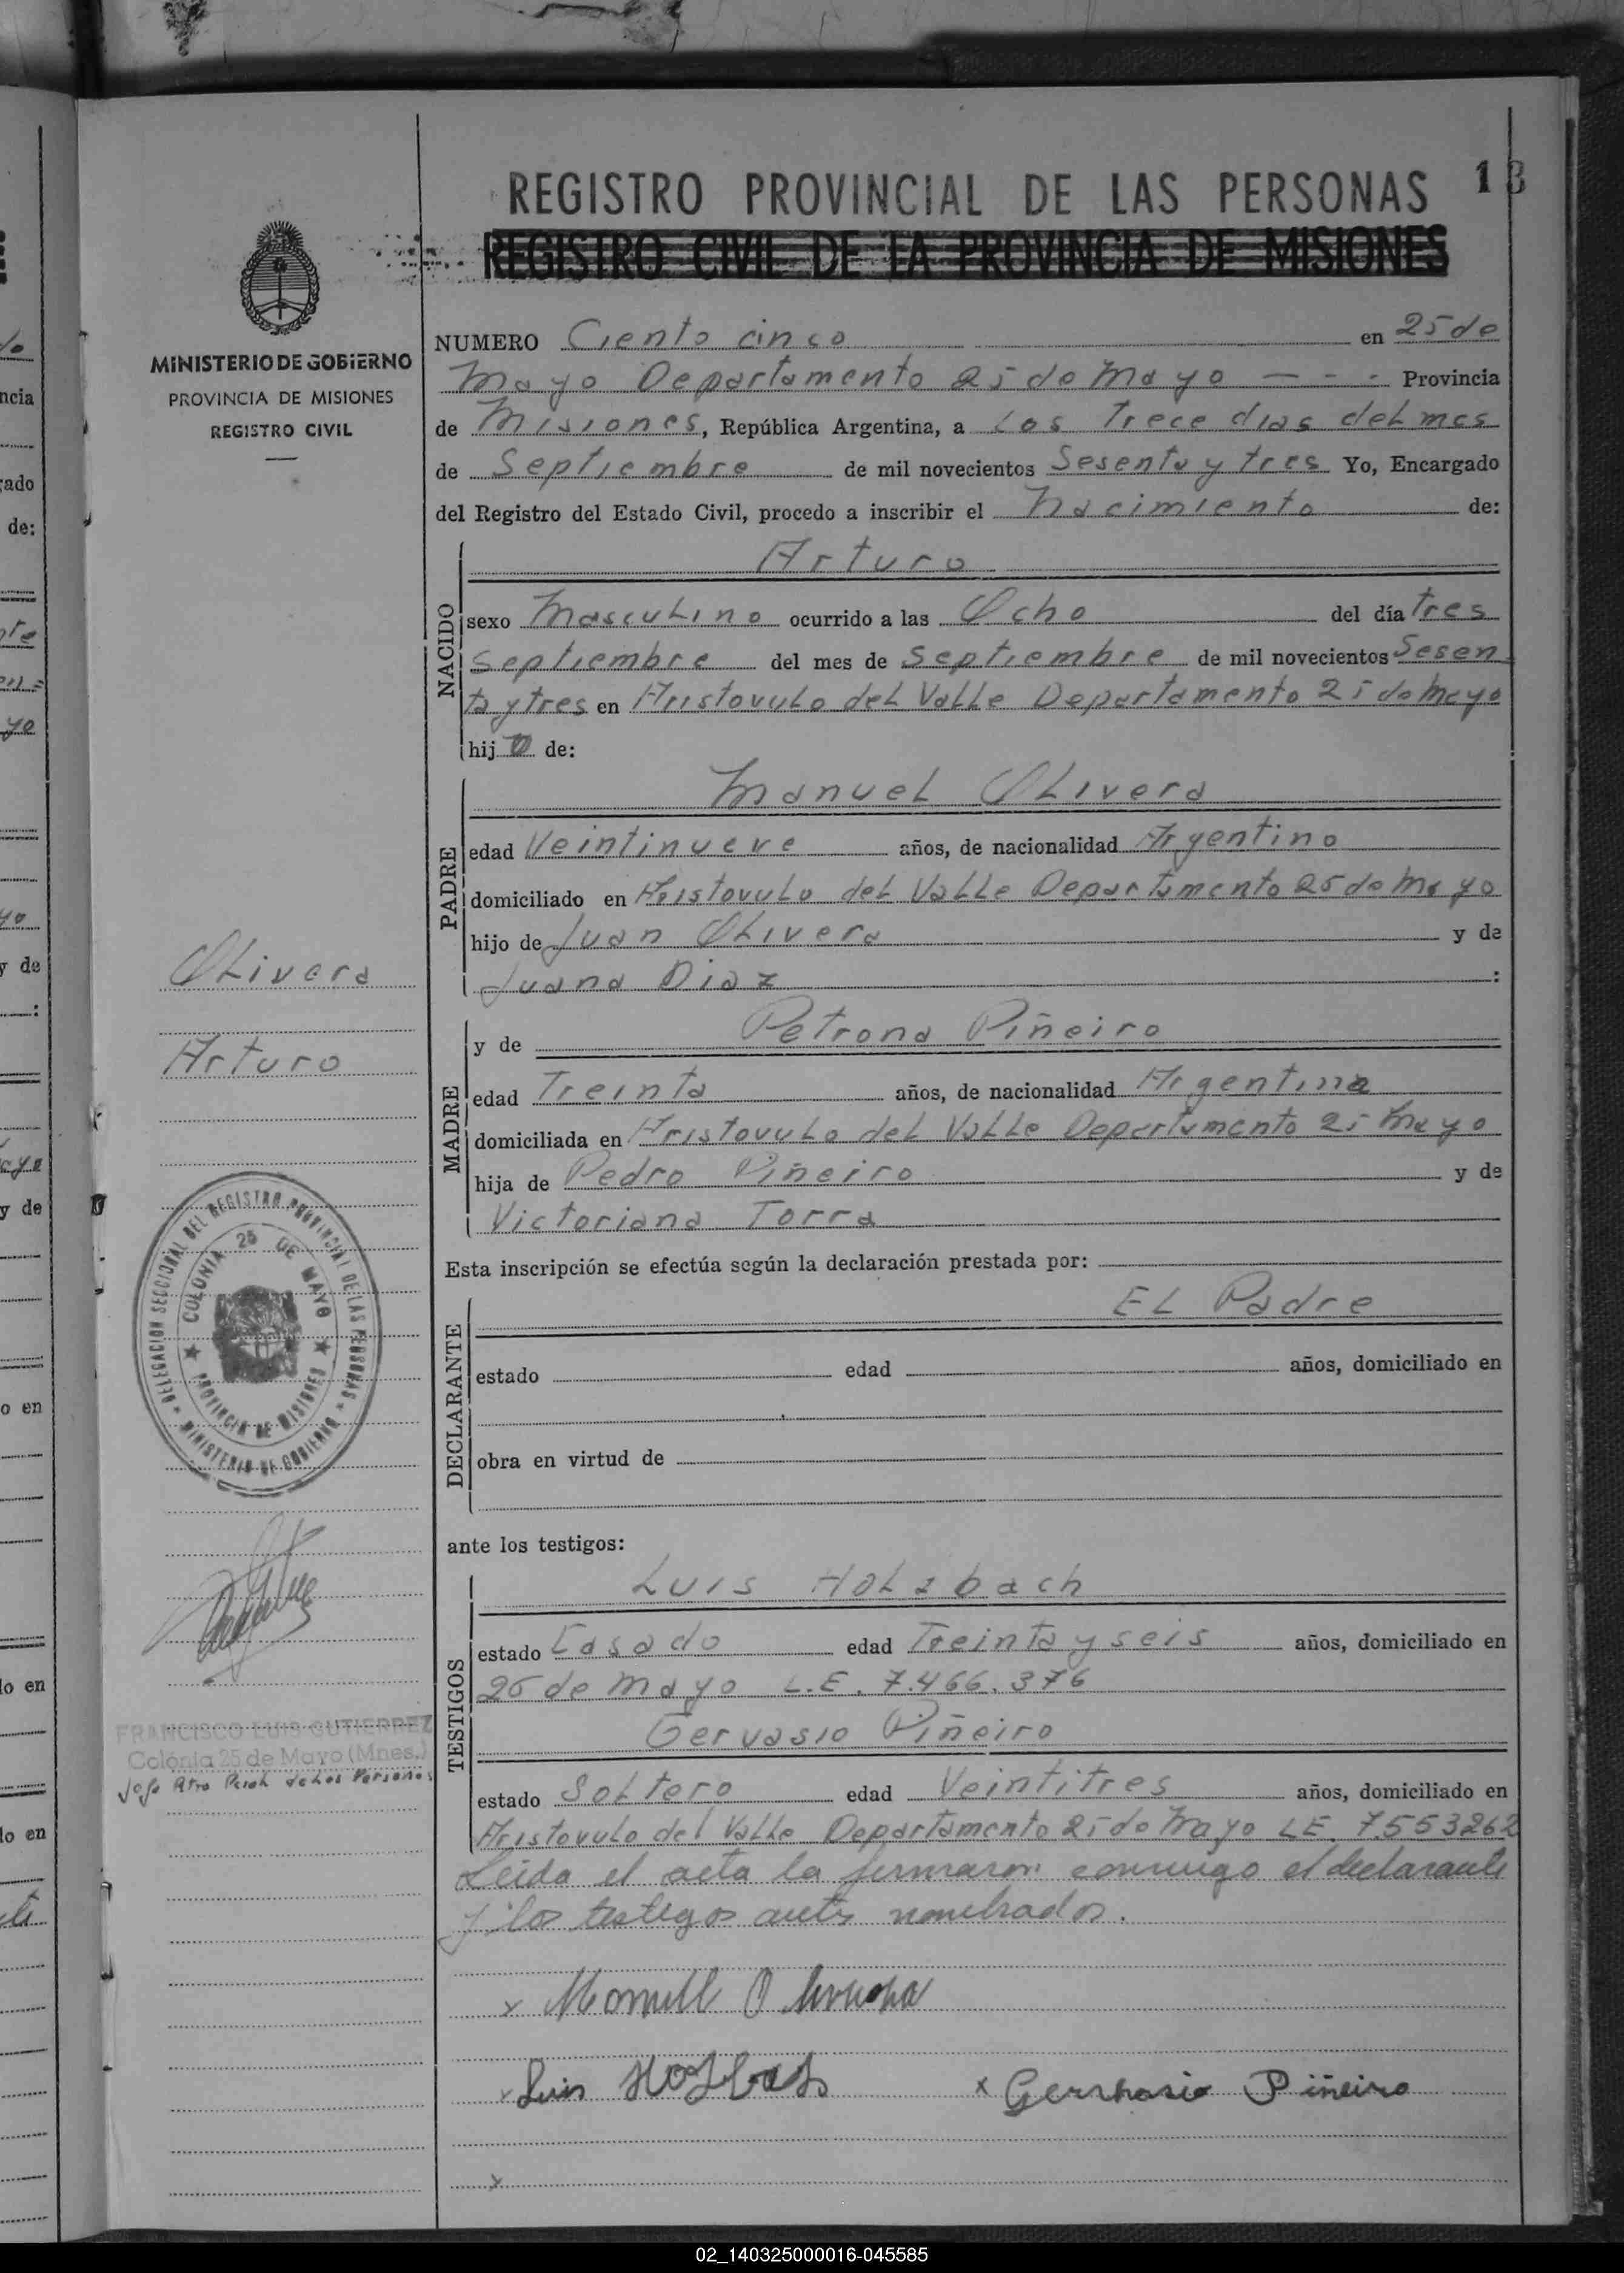 REGISTRO PROVINCIAL DE LAS PERSONAS
13
REGISTRO CIVIL DE LA PROVINCIA DE MISIONES
MINISTERIO DE GOBIERNO
PROVINCIA DE MISIONES
REGISTRO CIVIL
NUMERO Ciento cinco en 25 de
Mayo Departamento 25 de Mayo - - - Provincia
de Misiones, República Argentina, a Los Trece dias del mes
de Septiembre de mil novecientos Sesenta y tres Yo, Encargado
del Registro del Estado Civil, procedo a inscribir el Nacimiento de:
NACIDO
Arturo
sexo Masculino ocurrido a las Ocho del día tres
Septiembre del mes de Septiembre de mil novecientos Sesen
ta y tres en Aristovulo del Valle Departamento 25 de Mayo
hijo de:
PADRE
Manuel Olivera
edad Veintinueve años, de nacionalidad Argentino
domiciliado en Aristovulo del Valle Departamento 25 de Mayo
hijo de Juan Olivera y de
Juana Diaz :
MADRE
y de Petrona Piñeiro
edad Treinta años, de nacionalidad Argentina
domiciliada en Aristovulo del Valle Departamento 25 Mayo
hija de Pedro Piñeiro y de
Victoriana Torra
Esta inscripción se efectúa según la declaración prestada por:
DECLARANTE
El Padre
estado edad años, domiciliado en
obra en virtud de
ante los testigos:
TESTIGOS
Luis Holzbach
estado Casado edad Treinta y seis años, domiciliado en
25 de Mayo L.E. 7.466.376
Gervasio Piñeiro
estado Soltero edad Veintitres años, domiciliado en
Aristovulo del Valle Departamento 25 de Mayo LE 7.553262
Leída el acta la firmaron conmigo el declarante
y los testigos antes nombrados.
x Manuel Olivera
x Luis Holzbach x Gershasio Piñeiro
x
Olivera
Arturo
DELEGACION SECCIONAL DEL REGISTRO PROVINCIAL DE LAS PERSONAS
MINISTERIO DE GOBIERNO
COLONIA 25 DE MAYO
PROVINCIA DE MISIONES
FRANCISCO LUIS GUTIERREZ
Colonia 25 de Mayo (Mnes.)
Jefe de Las Personas
ncia
ado
de:
yo
y de
:
y de
o en
lo en
lo en
02_140325000016-045585